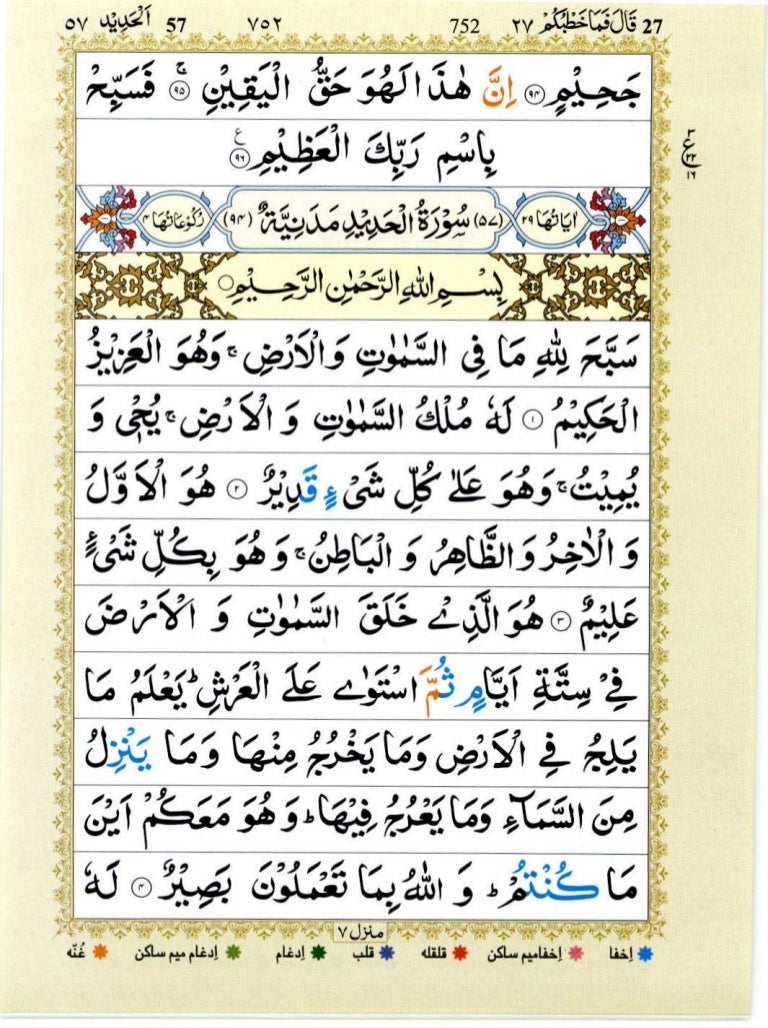 27 قَالَ فَمَا خَطْبُكُمْ ٢٧ 752 ٧٥٢ 57 اَلْحَدِيْد ٥٧
جَحِيْمٍ ۝٩٤ اِنَّ هٰذَا لَهُوَ حَقُّ الْيَقِيْنِ ۝٩٥ۚ فَسَبِّحْ
بِاسْمِ رَبِّكَ الْعَظِيْمِ ۝٩٦ۧ
٣ ع ٢٢ ١٦
اٰيَاتُهَا ٢٩ (٥٧) سُوْرَةُ الْحَدِيْدِ مَدَنِيَّةٌ (٩٤) رُكُوْعَاتُهَا ٤
بِسْمِ اللّٰهِ الرَّحْمٰنِ الرَّحِيْمِ ۝
سَبَّحَ لِلّٰهِ مَا فِى السَّمٰوٰتِ وَالْاَرْضِ ۚ وَهُوَ الْعَزِيْزُ
الْحَكِيْمُ ۝١ لَهٗ مُلْكُ السَّمٰوٰتِ وَ الْاَرْضِ ۚ يُحْيٖ وَ
يُمِيْتُ ۚ وَهُوَ عَلٰى كُلِّ شَىْءٍ قَدِيْرٌ ۝٢ هُوَ الْاَوَّلُ
وَ الْاٰخِرُ وَ الظَّاهِرُ وَ الْبَاطِنُ ۚ وَ هُوَ بِكُلِّ شَىْءٍ
عَلِيْمٌ ۝٣ هُوَ الَّذِىْ خَلَقَ السَّمٰوٰتِ وَ الْاَرْضَ
فِىْ سِتَّةِ اَيَّامٍ ثُمَّ اسْتَوٰى عَلَى الْعَرْشِ ؕ يَعْلَمُ مَا
يَلِجُ فِى الْاَرْضِ وَمَا يَخْرُجُ مِنْهَا وَمَا يَنْزِلُ
مِنَ السَّمَآءِ وَمَا يَعْرُجُ فِيْهَا ؕ وَ هُوَ مَعَكُمْ اَيْنَ
مَا كُنْتُمْ ؕ وَ اللّٰهُ بِمَا تَعْمَلُوْنَ بَصِيْرٌ ۝٤ لَهٗ
منزل ٧
اِخفا اِخفامیم ساکن قلقله قلب اِدغام اِدغام میم ساکن غُنّه